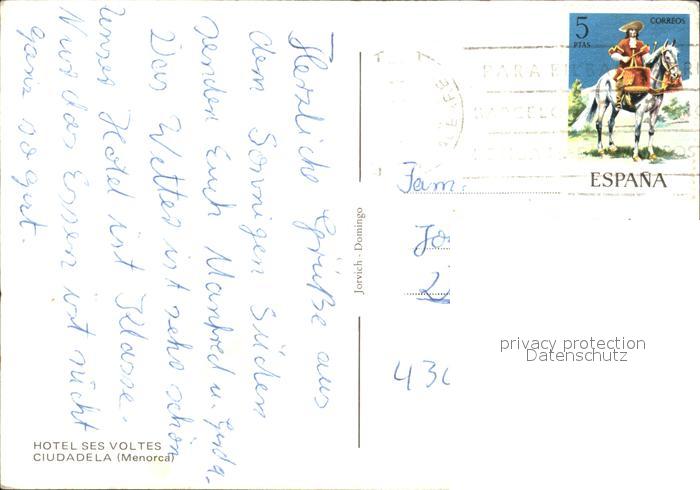 Herzliche Grüße aus
dem Sonnigen Süden
senden Euch Manfred u. Gerda.
Das Wetter ist sehr schön
unser Hotel ist Klasse.
Nur das Essen ist nicht
ganz so gut.
HOTEL SES VOLTES
CIUDADELA (Menorca)
Jorvich - Domingo
5
PTAS
CORREOS
ESPAÑA
PARA
Fam.
Jo
430
privacy protection
Datenschutz